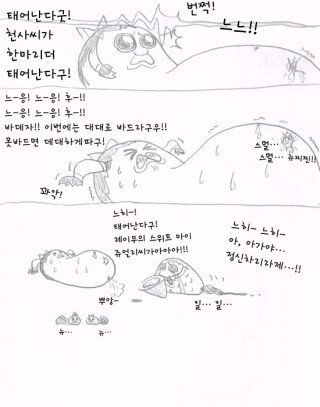 태어난다굿!
천사씨가
한마리더
태어난다구!
번쩍!
느느!!
느-응! 느-응! 후-!!
느-응! 느-응! 후-!!
바데자!! 이번에는 대대로 바드라구우!!
못바드면 데대하게따구!
스멀…
스멀… 뉴찌찐!!
꽈악!
느히-!
태어난다구!
레이무의 스위트 마이
쥬얼리씨가아아아!!!
느히- 느히-
아, 아가야…
정신차리라제…!!
뿌앙-
질… 질…
뉴… 뉴…